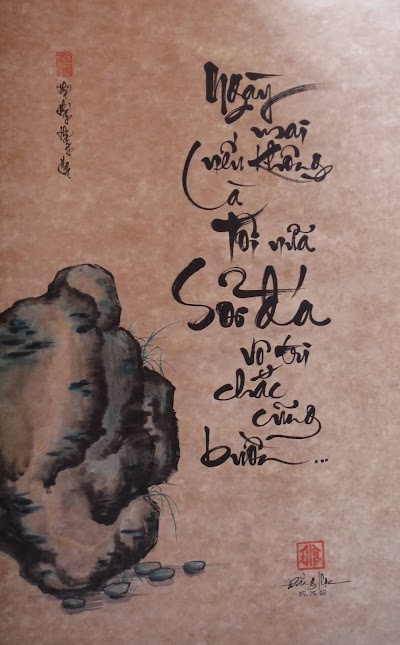 Ngày
mai
(nếu không
Là
Tôi nữa
Sỏi đá
vô tri
chắc
cũng
buồn...
05.05.08